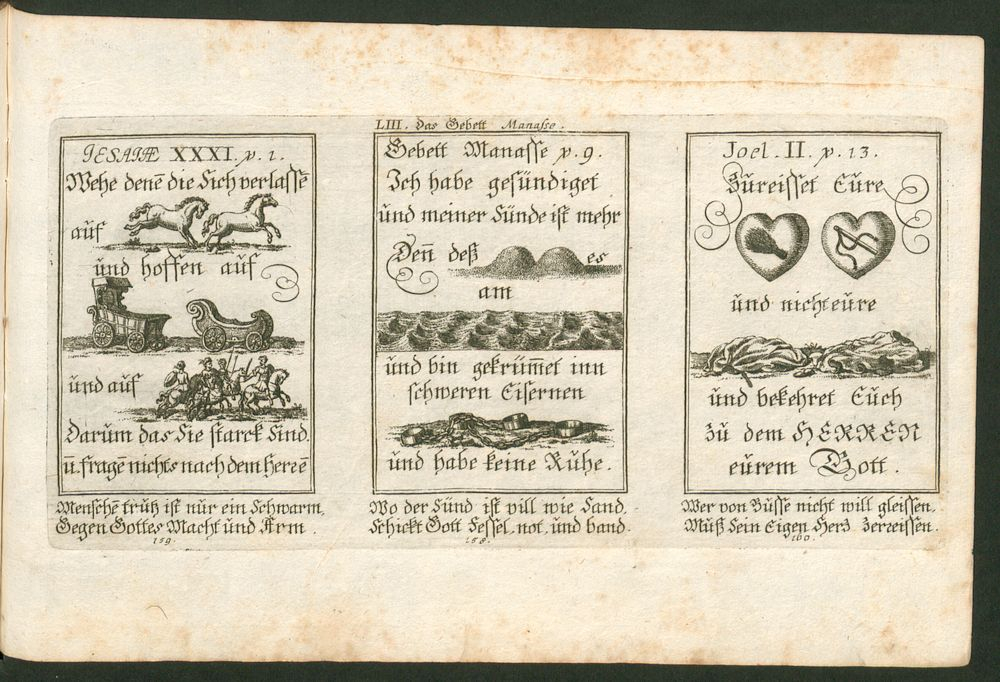 JESAIÆ XXXI. v. 1.
Wehe denē die sich verlassē
auf
und hoffen auf
und auf
Darum das sie starck sind.
ū. fragē nichts nach dem Herrē
Menschē trutz ist nur ein Schwarm,
Gegen Gottes Macht und Arm.
159.
LIII. Das Gebett Manasse.
Gebett Manasse v. 9.
Ich habe gesündiget
und meiner Sünde ist mehr
Deñ deß es
am
und bin gekrüm̄et inn
schweren Eisernen
und habe keine Ruhe.
Wo der Sünd ist vill wie Sand.
Schickt Gott Fessel, not, und band.
158.
Joel. II. v. 13.
Zureisset Eure
und nicht eure
und bekehret Euch
zu dem HERREN
eurem Gott.
Wer von Busse nicht will gleissen,
Muß sein Eigen Herz zerreissen.
160.